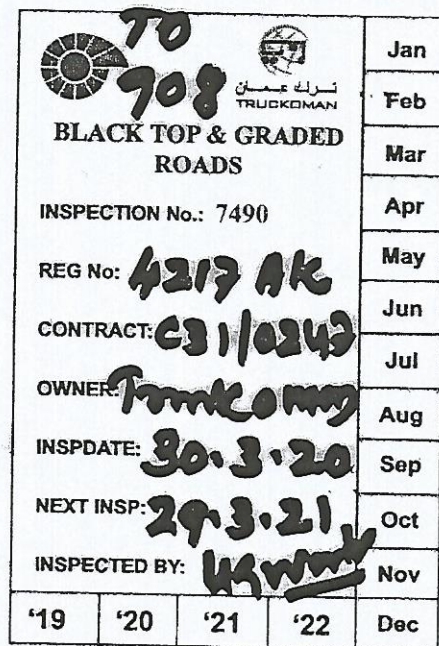 TO
708
ترك عمان
TRUCKOMAN
BLACK TOP & GRADED
ROADS
INSPECTION No.: 7490
REG No: 4217 AK
CONTRACT: C31/0247
OWNER:
INSPDATE: 30.3.20
NEXT INSP: 29.3.21
INSPECTED BY:
Jan
Feb
Mar
Apr
May
Jun
Jul
Aug
Sep
Oct
Nov
Dec
'19 '20 '21 '22